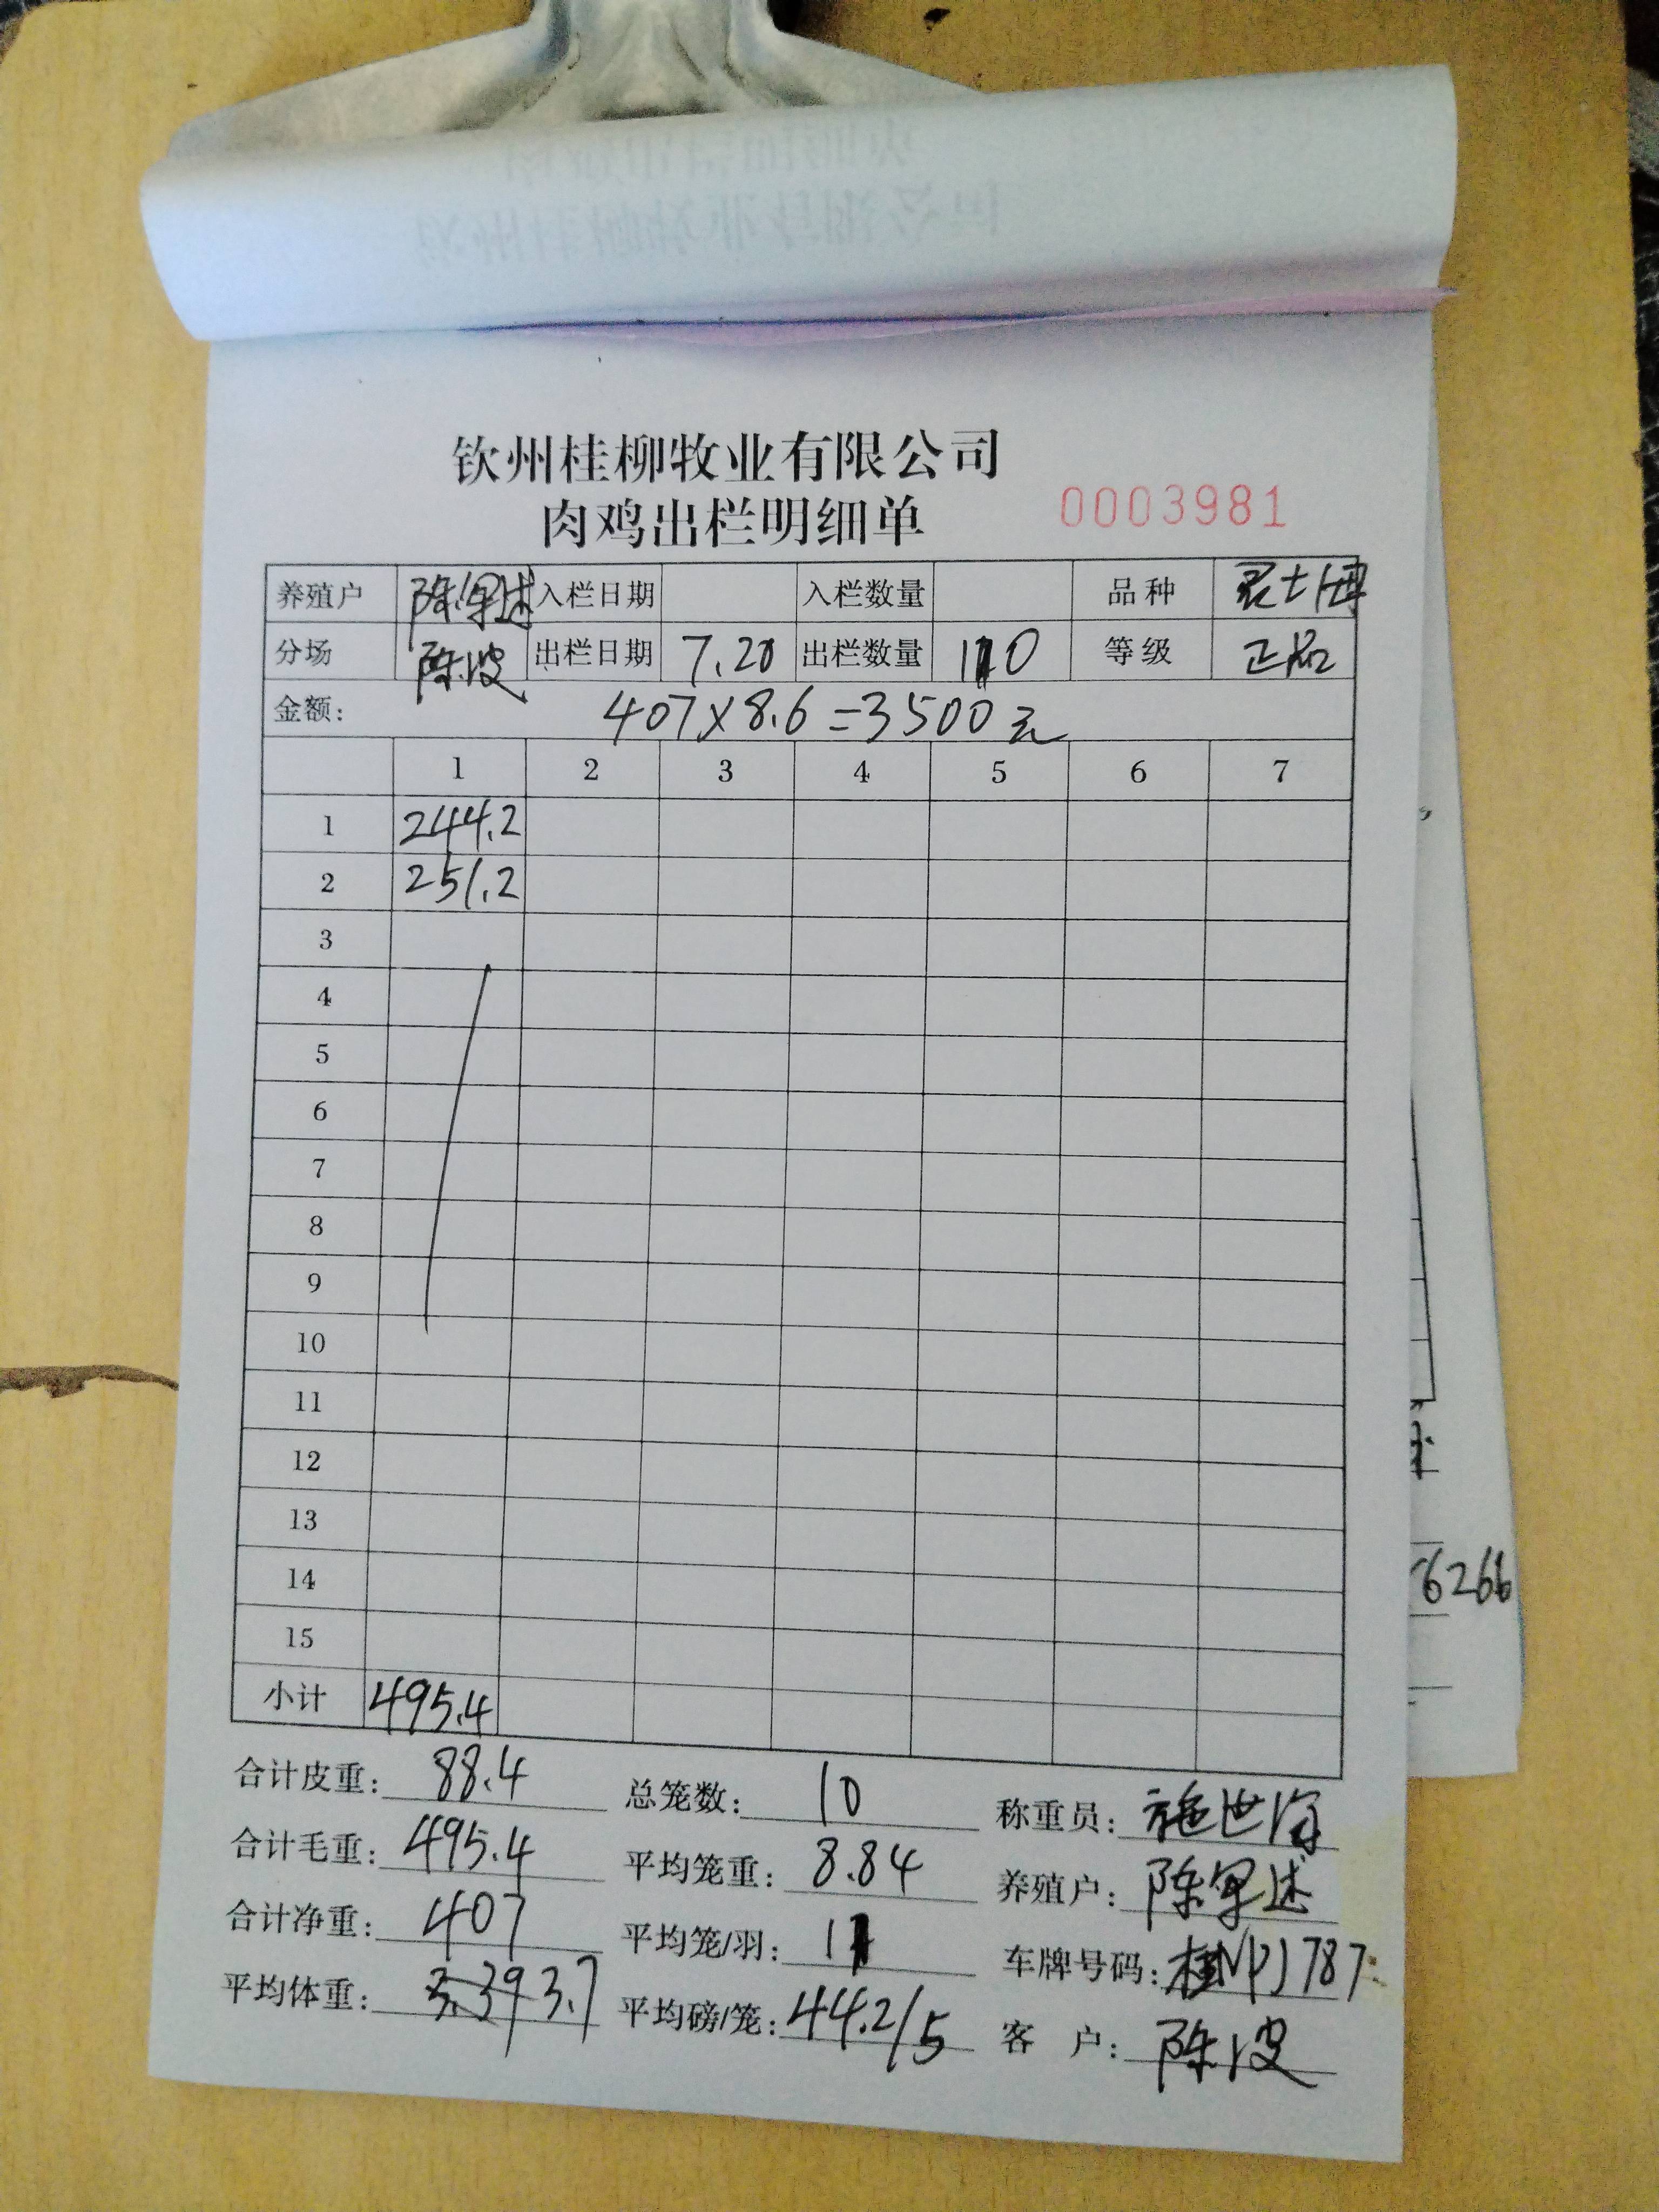 钦州桂柳牧业有限公司
肉鸡出栏明细单 0003981
养殖户 陈军述 入栏日期 入栏数量 品种
分场 陈波 出栏日期 7.20 出栏数量 110 等级 正品
金额: 407×8.6=3500元
1 2 3 4 5 6 7
1 244.2
2 251.2
3
4
5
6
7
8
9
10
11
12
13
14
15
小计 495.4
合计皮重: 88.4 总笼数: 10 称重员: 施世海
合计毛重: 495.4 平均笼重: 8.84 养殖户: 陈军述
合计净重: 407 平均笼/羽: 11 车牌号码: 桂NPJ787
平均体重: 3.7 平均磅/笼: 44.2/5 客户: 陈波
6266